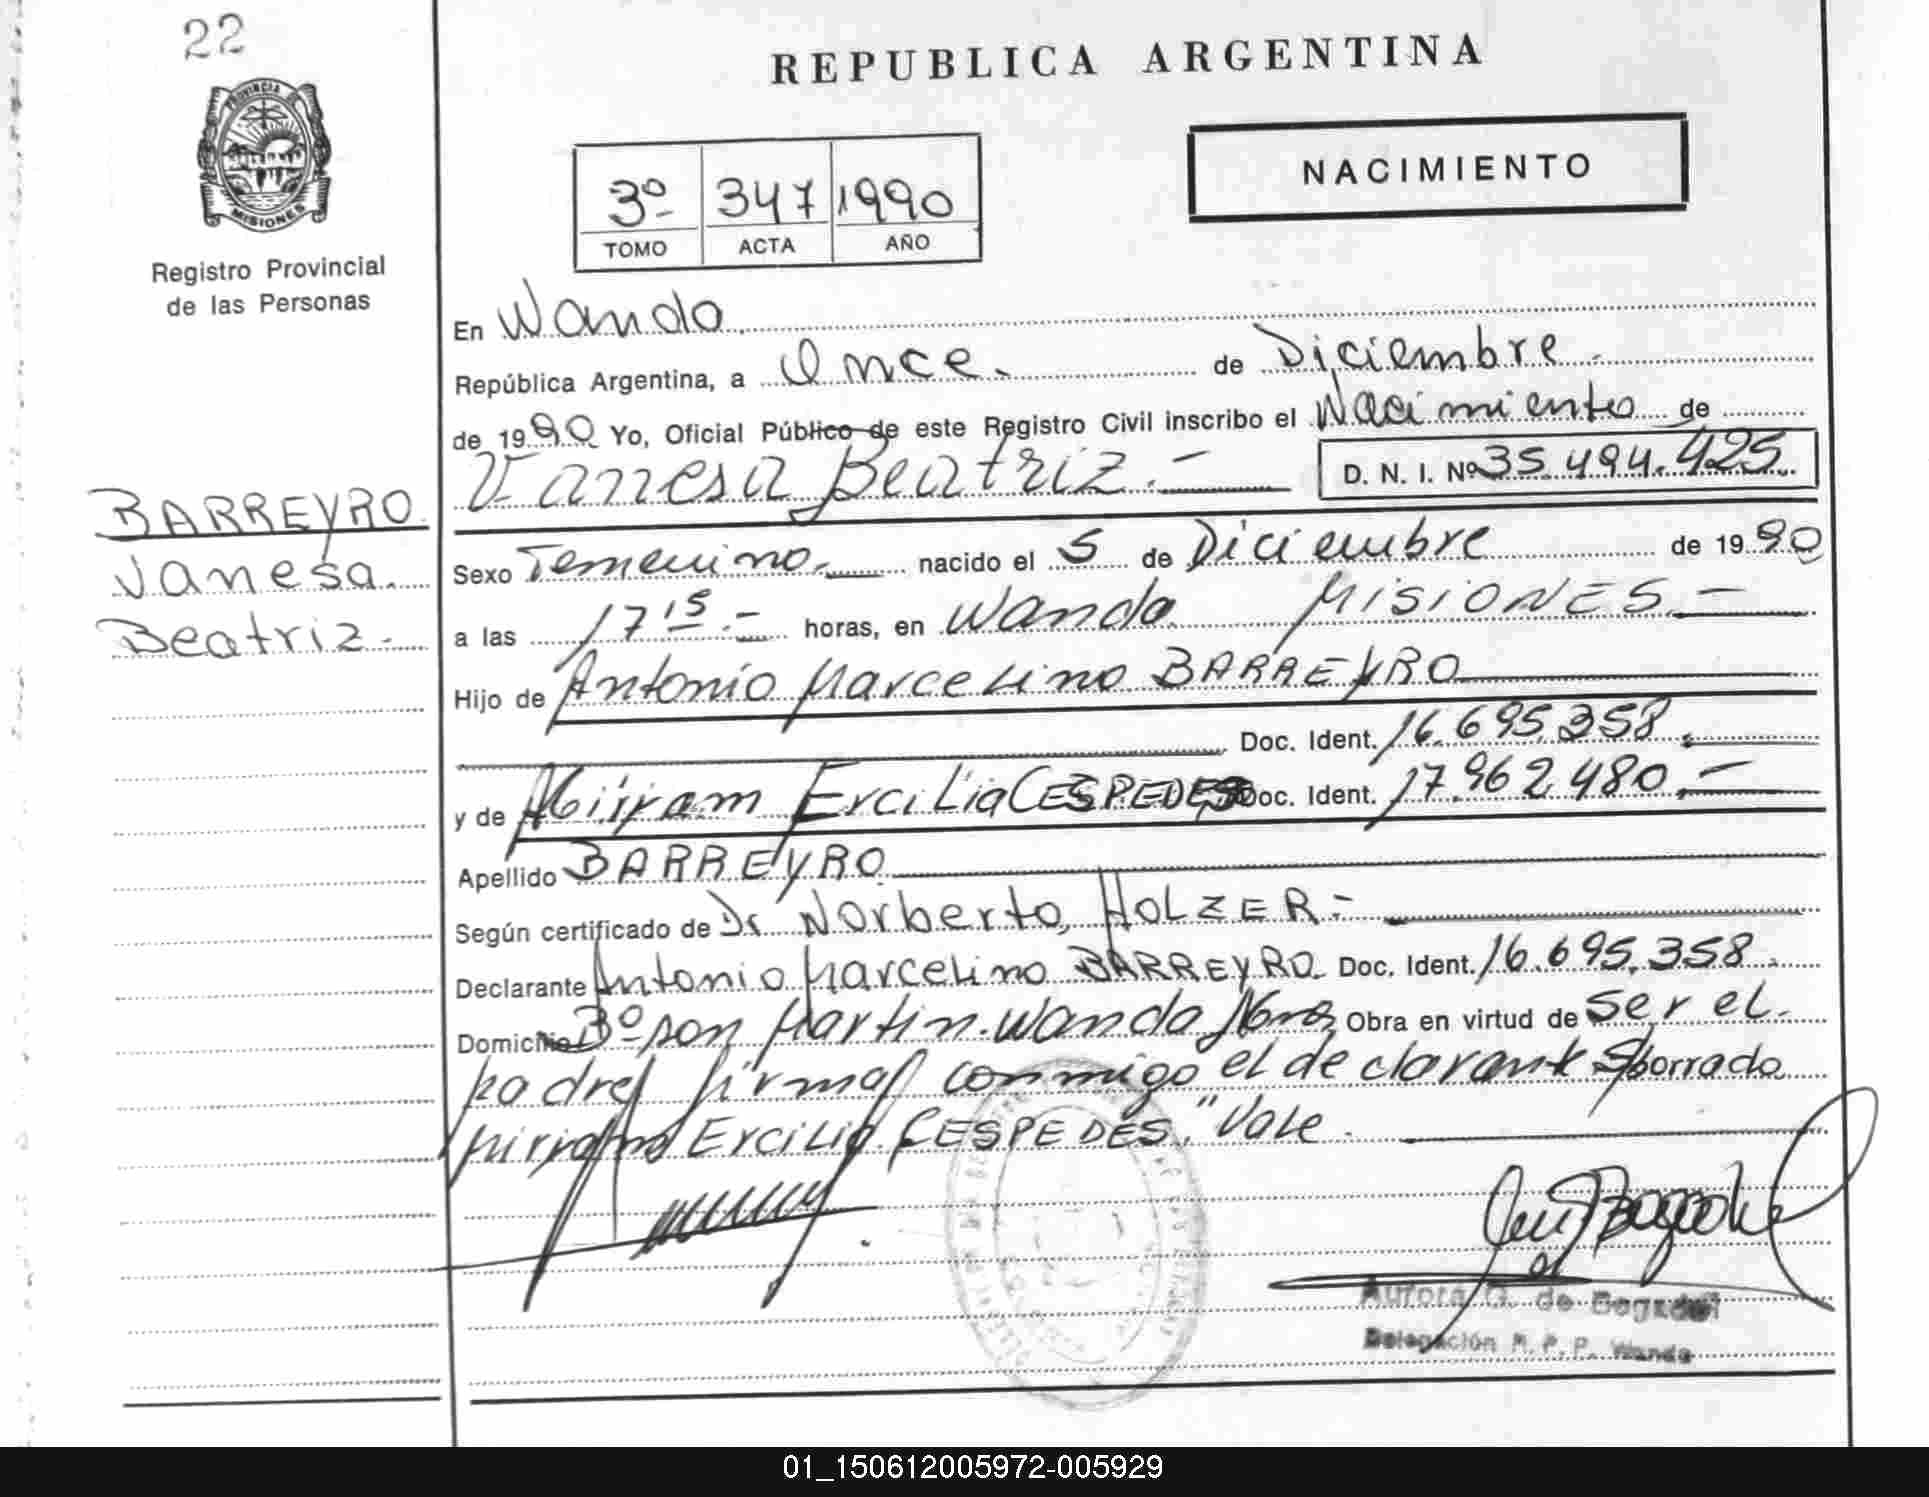 22
PROVINCIA DE
MISIONES
Registro Provincial
de las Personas
REPUBLICA ARGENTINA
3º 347 1990
TOMO ACTA AÑO
NACIMIENTO
En Wanda
República Argentina, a Once. de Diciembre.
de 1990 Yo, Oficial Público de este Registro Civil inscribo el Nacimiento de
Vanesa Beatriz.- D. N. I. Nº 35.494.425
BARREYRO
Vanesa.
Beatriz.-
Sexo Femenino. nacido el 5 de Diciembre de 1990
a las 17 15.- horas, en Wanda MISIONES.-
Hijo de Antonio Marcelino BARREYRO
Doc. Ident. 16.695.358.
y de Mirjam Ercilia CESPEDES Doc. Ident. 17.962.480.-
Apellido BARREYRO
Según certificado de Dr Norberto, HOLZER.-
Declarante Antonio Marcelino BARREYRO Doc. Ident. 16.695.358.
Domicilio Bº San Martin. Wanda Mnes Obra en virtud de ser el.
padre/ firma/ conmigo el declarante S/borrado
Mirjam Ercilia CESPEDES." Vale.
Aurora G. de
Delegación R. P. P. Wanda
01_150612005972-005929